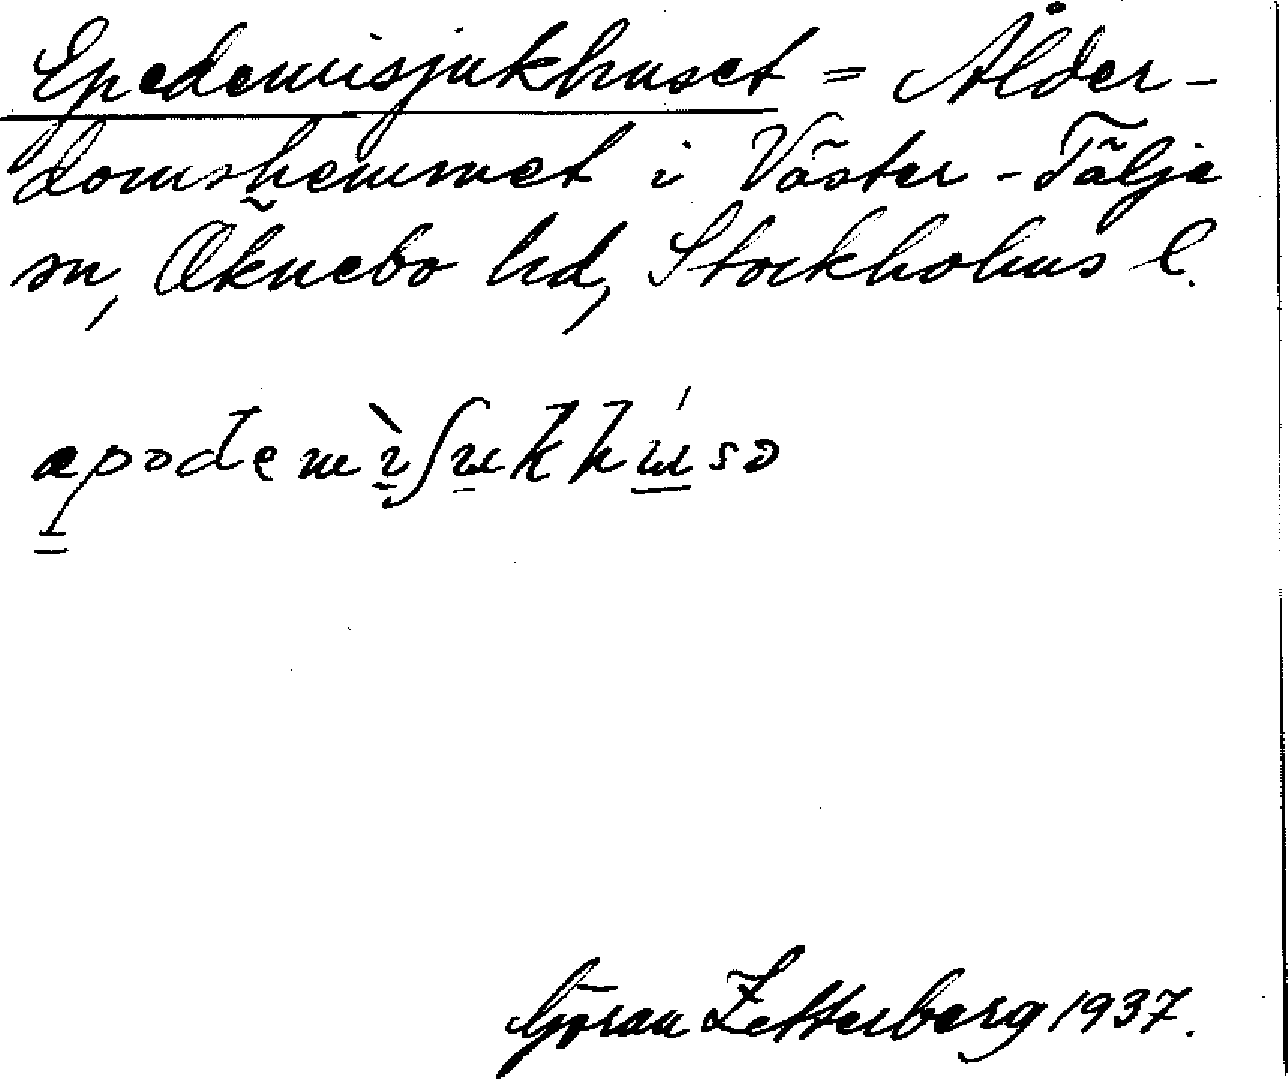 Epedemisjukhuset = Ålder-
domshemmet i Väster-Tälje
sn, Öknebo hd, Stockholms l.
Göran Zetterberg 1937.